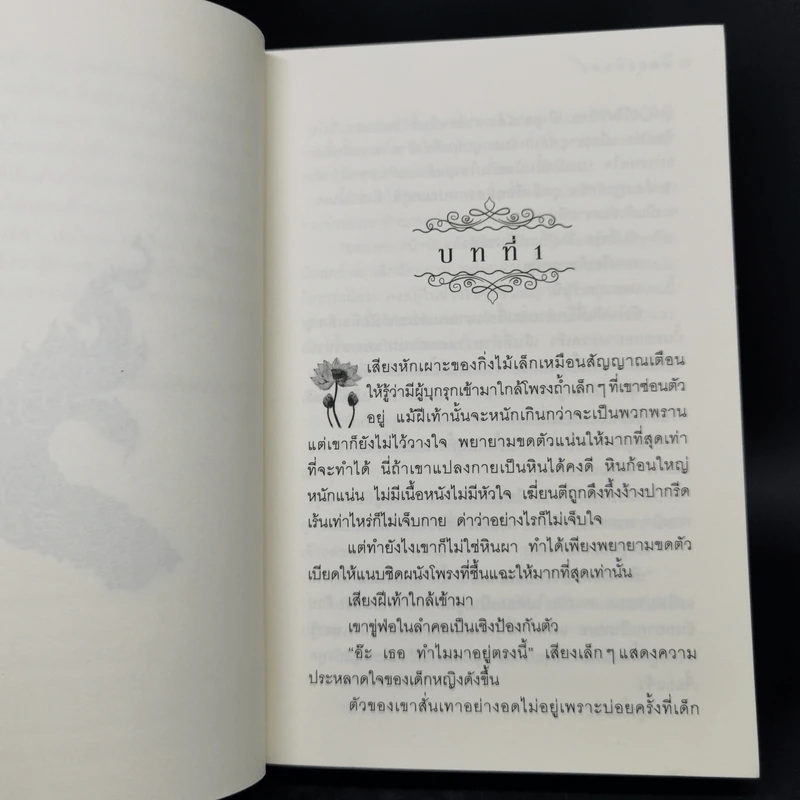 บ ท ที่ 1
เสียงหักเผาะของกิ่งไม้เล็กเหมือนสัญญาณเตือน
ให้รู้ว่ามีผู้บุกรุกเข้ามาใกล้โพรงถ้ำเล็กๆ ที่เขาซ่อนตัว
อยู่ แม้ฝีเท้านั้นจะหนักเกินกว่าจะเป็นพวกพราน
แต่เขาก็ยังไม่ไว้วางใจ พยายามขดตัวแน่นให้มากที่สุดเท่า
ที่จะทำได้ นี่ถ้าเขาแปลงกายเป็นหินได้คงดี หินก้อนใหญ่
หนักแน่น ไม่มีเนื้อหนังไม่มีหัวใจ เฆี่ยนตีถูกดึงทึ้งง้างปากรีด
เร้นเท่าไหร่ก็ไม่เจ็บกาย ด่าว่าอย่างไรก็ไม่เจ็บใจ
แต่ทำยังไงเขาก็ไม่ใช่หินผา ทำได้เพียงพยายามขดตัว
เบียดให้แนบชิดผนังโพรงที่ชื้นแฉะให้มากที่สุดเท่านั้น
เสียงฝีเท้าใกล้เข้ามา
เขาขู่ฟ่อในลำคอเป็นเชิงป้องกันตัว
“อ๊ะ เธอ ทำไมมาอยู่ตรงนี้” เสียงเล็กๆ แสดงความ
ประหลาดใจของเด็กหญิงดังขึ้น
ตัวของเขาสั่นเทาอย่างอดไม่อยู่เพราะบ่อยครั้งที่เด็ก